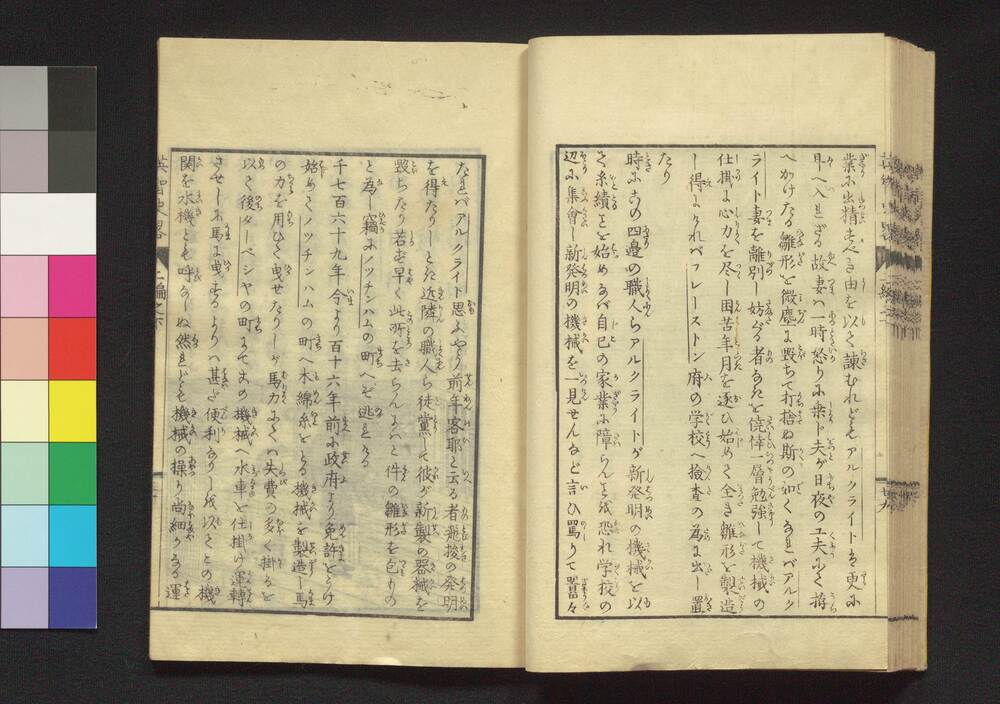 業に出精すべき由を以て諫むれどもアルクライトは更に
耳へ入れざる故妻ハ一時怒りに乗ト夫が日夜の工夫にて拵
へかけたる雛形を微塵に毀ちて打捨ぬ斯の如くなれバアルク
ライト妻を離別し妨ぐる者なきを僥倖一層勉強して機械の
仕掛に心力を尽し困苦年月を逐ひ始めて全き雛形を製造
し得にければプレーストン府の学校へ検査の為に出し置
たり
時に其の四邉の職人らアルクライトが新発明の機械を以
て糸績を始めなバ自己の家業に障らんとを恐れ学校の
辺に集會し新発明の機械を一見せんなど言ひ罵りて囂々
なれバアルクライト思ふやう前年客耶と云る者飛梭の発明
を得たりしとき近隣の職人ら徒黨して彼が新製の器械を
毀ちたり若も早く此所を去らんにハと件の雛形を包もの
と為し竊にノッチンハムの町へぞ逃れける
千七百六十九年今より百十六年前に政府より免許をうけ
始めてノッチンハムの町へ木綿糸をとる機械を製造し馬
の力を用ひて曳せたりしが馬力にてハ失費の多く掛るを
以て後ダーベシヤの町にて其の機械へ水車を仕掛け運轉
させしに馬に曳するよりハ甚だ便利なりしを以て其の機
関を水機とも呼なしぬ然れども機械の操り尚細かなる運